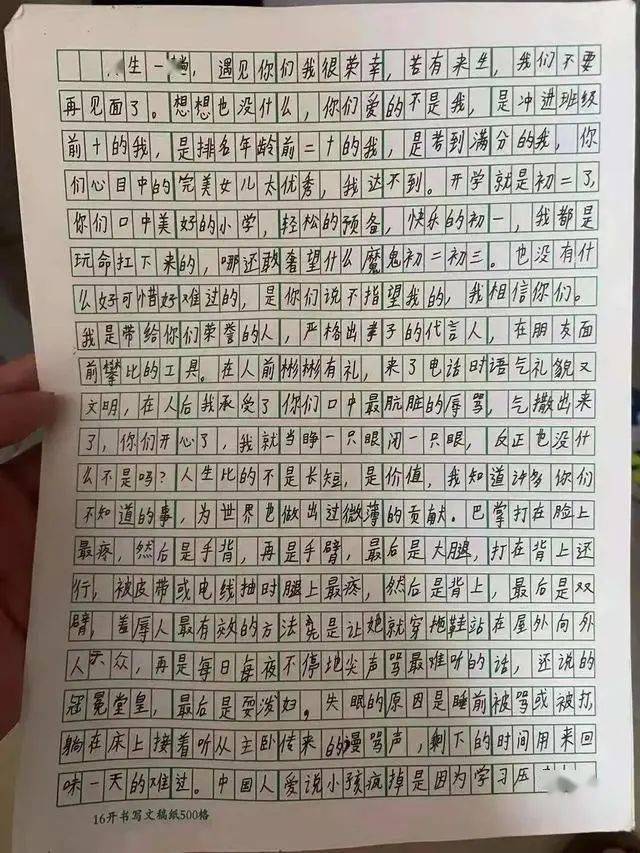 生一趟，遇见你们我很荣幸，若有来生，我们不要
再见面了。想想也没什么，你们爱的不是我，是冲进班级
前十的我，是排名年龄前二十的我，是考到满分的我，你
们心目中的完美女儿太优秀，我达不到。开学就是初二了，
你们口中美好的小学，轻松的预备，快乐的初一，我都是
玩命扛下来的，哪还敢奢望什么魔鬼初二初三。也没有什
么好可惜好难过的，是你们说不指望我的，我相信你们。
我是带给你们荣誉的人，严格出孝子的代言人，在朋友面
前攀比的工具。在人前彬彬有礼，来了电话时语气礼貌又
文明，在人后我承受了你们口中最肮脏的辱骂，气撒出来
了，你们开心了，我就当睁一只眼闭一只眼，反正也没什
么不是吗？人生比的不是长短，是价值，我知道许多你们
不知道的事，为世界也做出过微薄的贡献。巴掌打在脸上
最疼，然后是手背，再是手臂，最后是大腿，打在背上还
行，被皮带或电线抽时腿上最疼，然后是背上，最后是双
臂，羞辱人最有效的方法是让她就穿拖鞋站在屋外向外
人示众，再是每日每夜不停地尖声骂最难听的话，还说的
冠冕堂皇，最后是耍泼妇。失眠的原因是睡前被骂或被打，
躺在床上接着听从主卧传来的谩骂声，剩下的时间用来回
味一天的难过。中国人爱说小孩疯掉是因为学习压
16开书写文稿纸500格